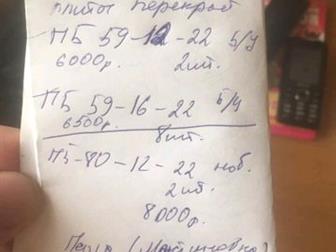 плиты перекрыт
ПБ 59-12-22 б/у
6000р. 2шт.
ПБ 59-16-22 б/у
6500р. 8шт.
ПБ-80-12-22 нов.
2шт.
8000р.